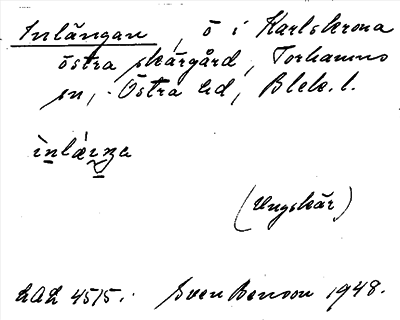 Inlängan, ö i Karlskrona
östra skärgård, Torhamns
sn, Östra hd, Blek. l.
(Ungskär)
LAL 4515. Sven Benson 1948.